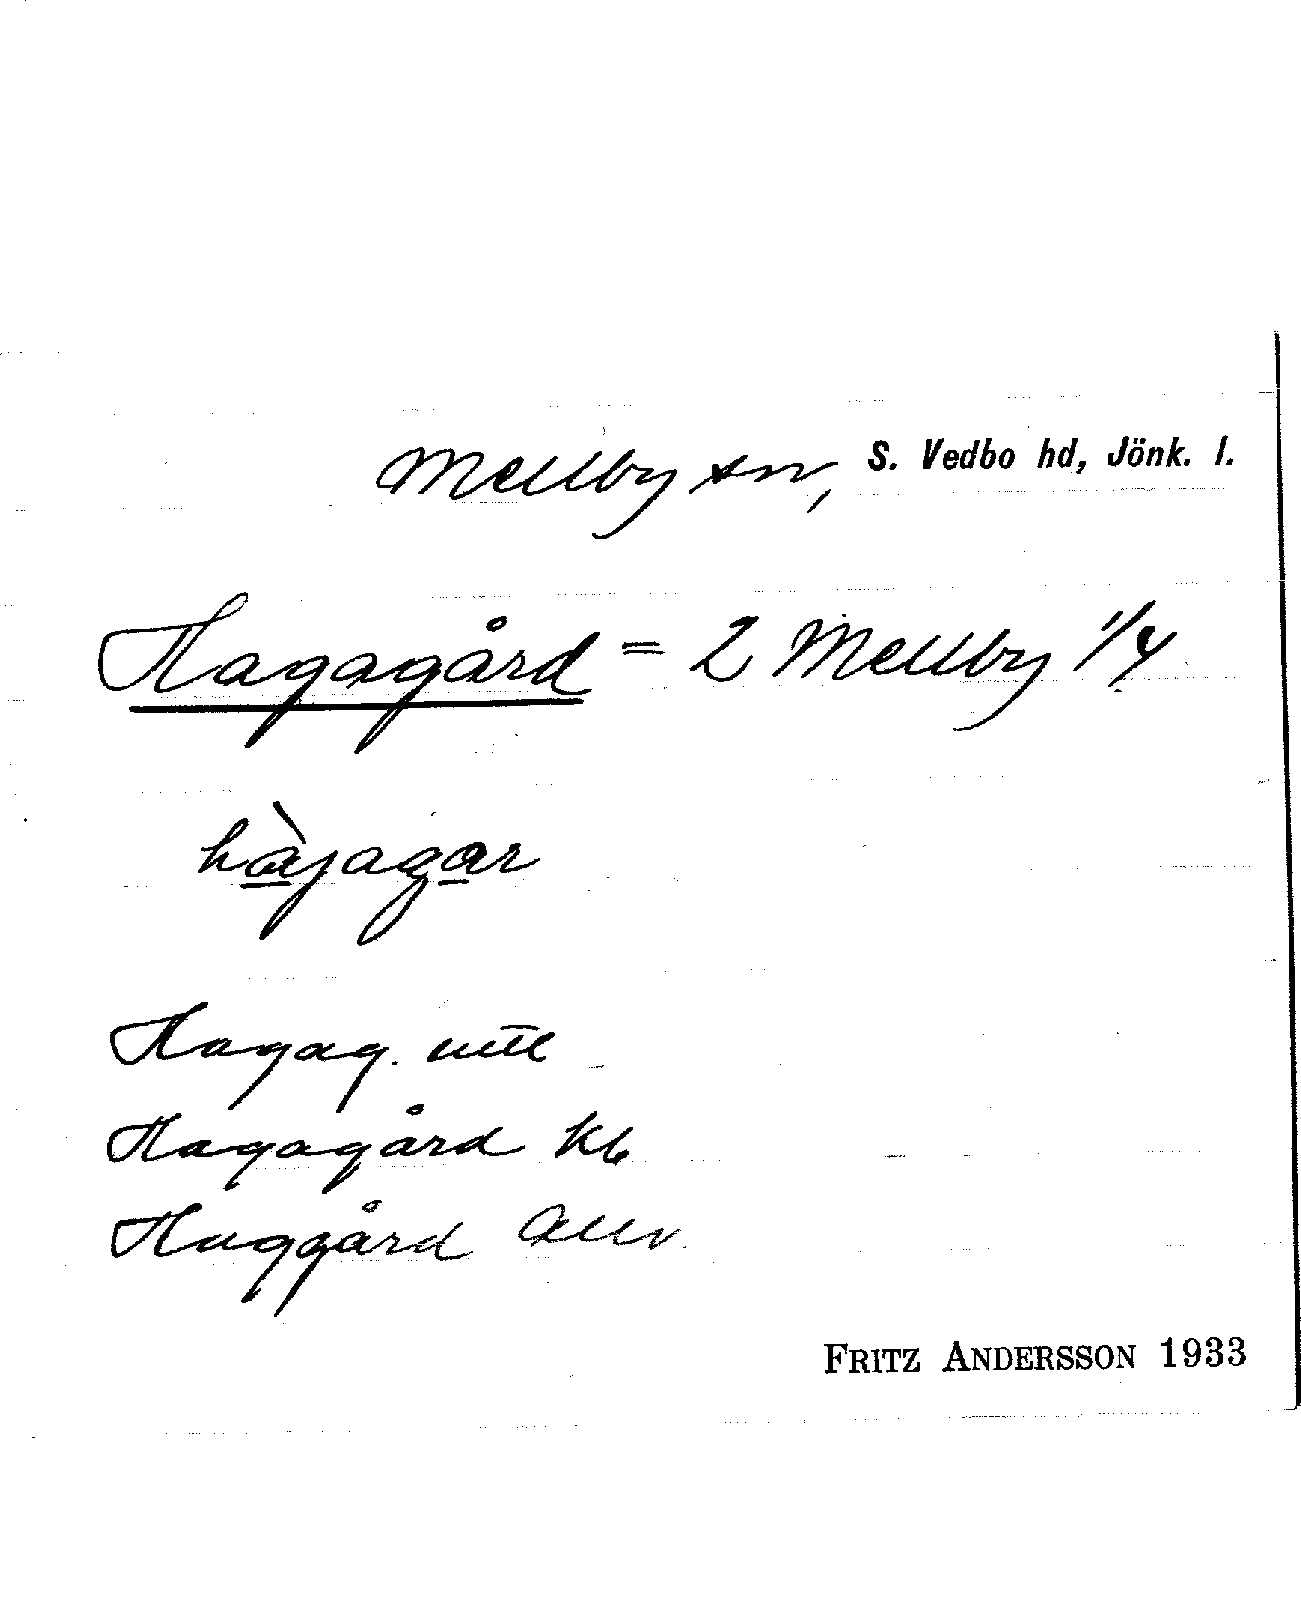 Mellby sn, S. Vedbo hd, Jönk. l.
Hagagård = 2 Mellby 1/4
hàjagar
Hagag. utt
Hagagård kb
Haggård allm
FRITZ ANDERSSON 1933